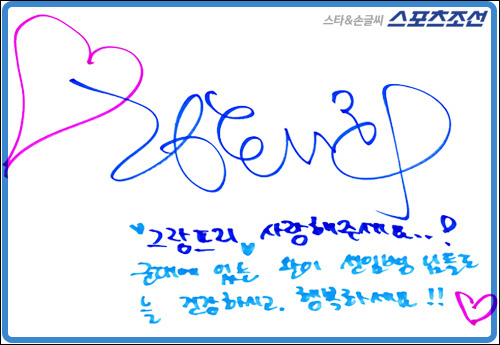 스타&손글씨 스포츠조선
그랑프리 사랑해주세요..!
군대에 있는 완이 선임병님들도
늘 건강하시고. 행복하세요!!